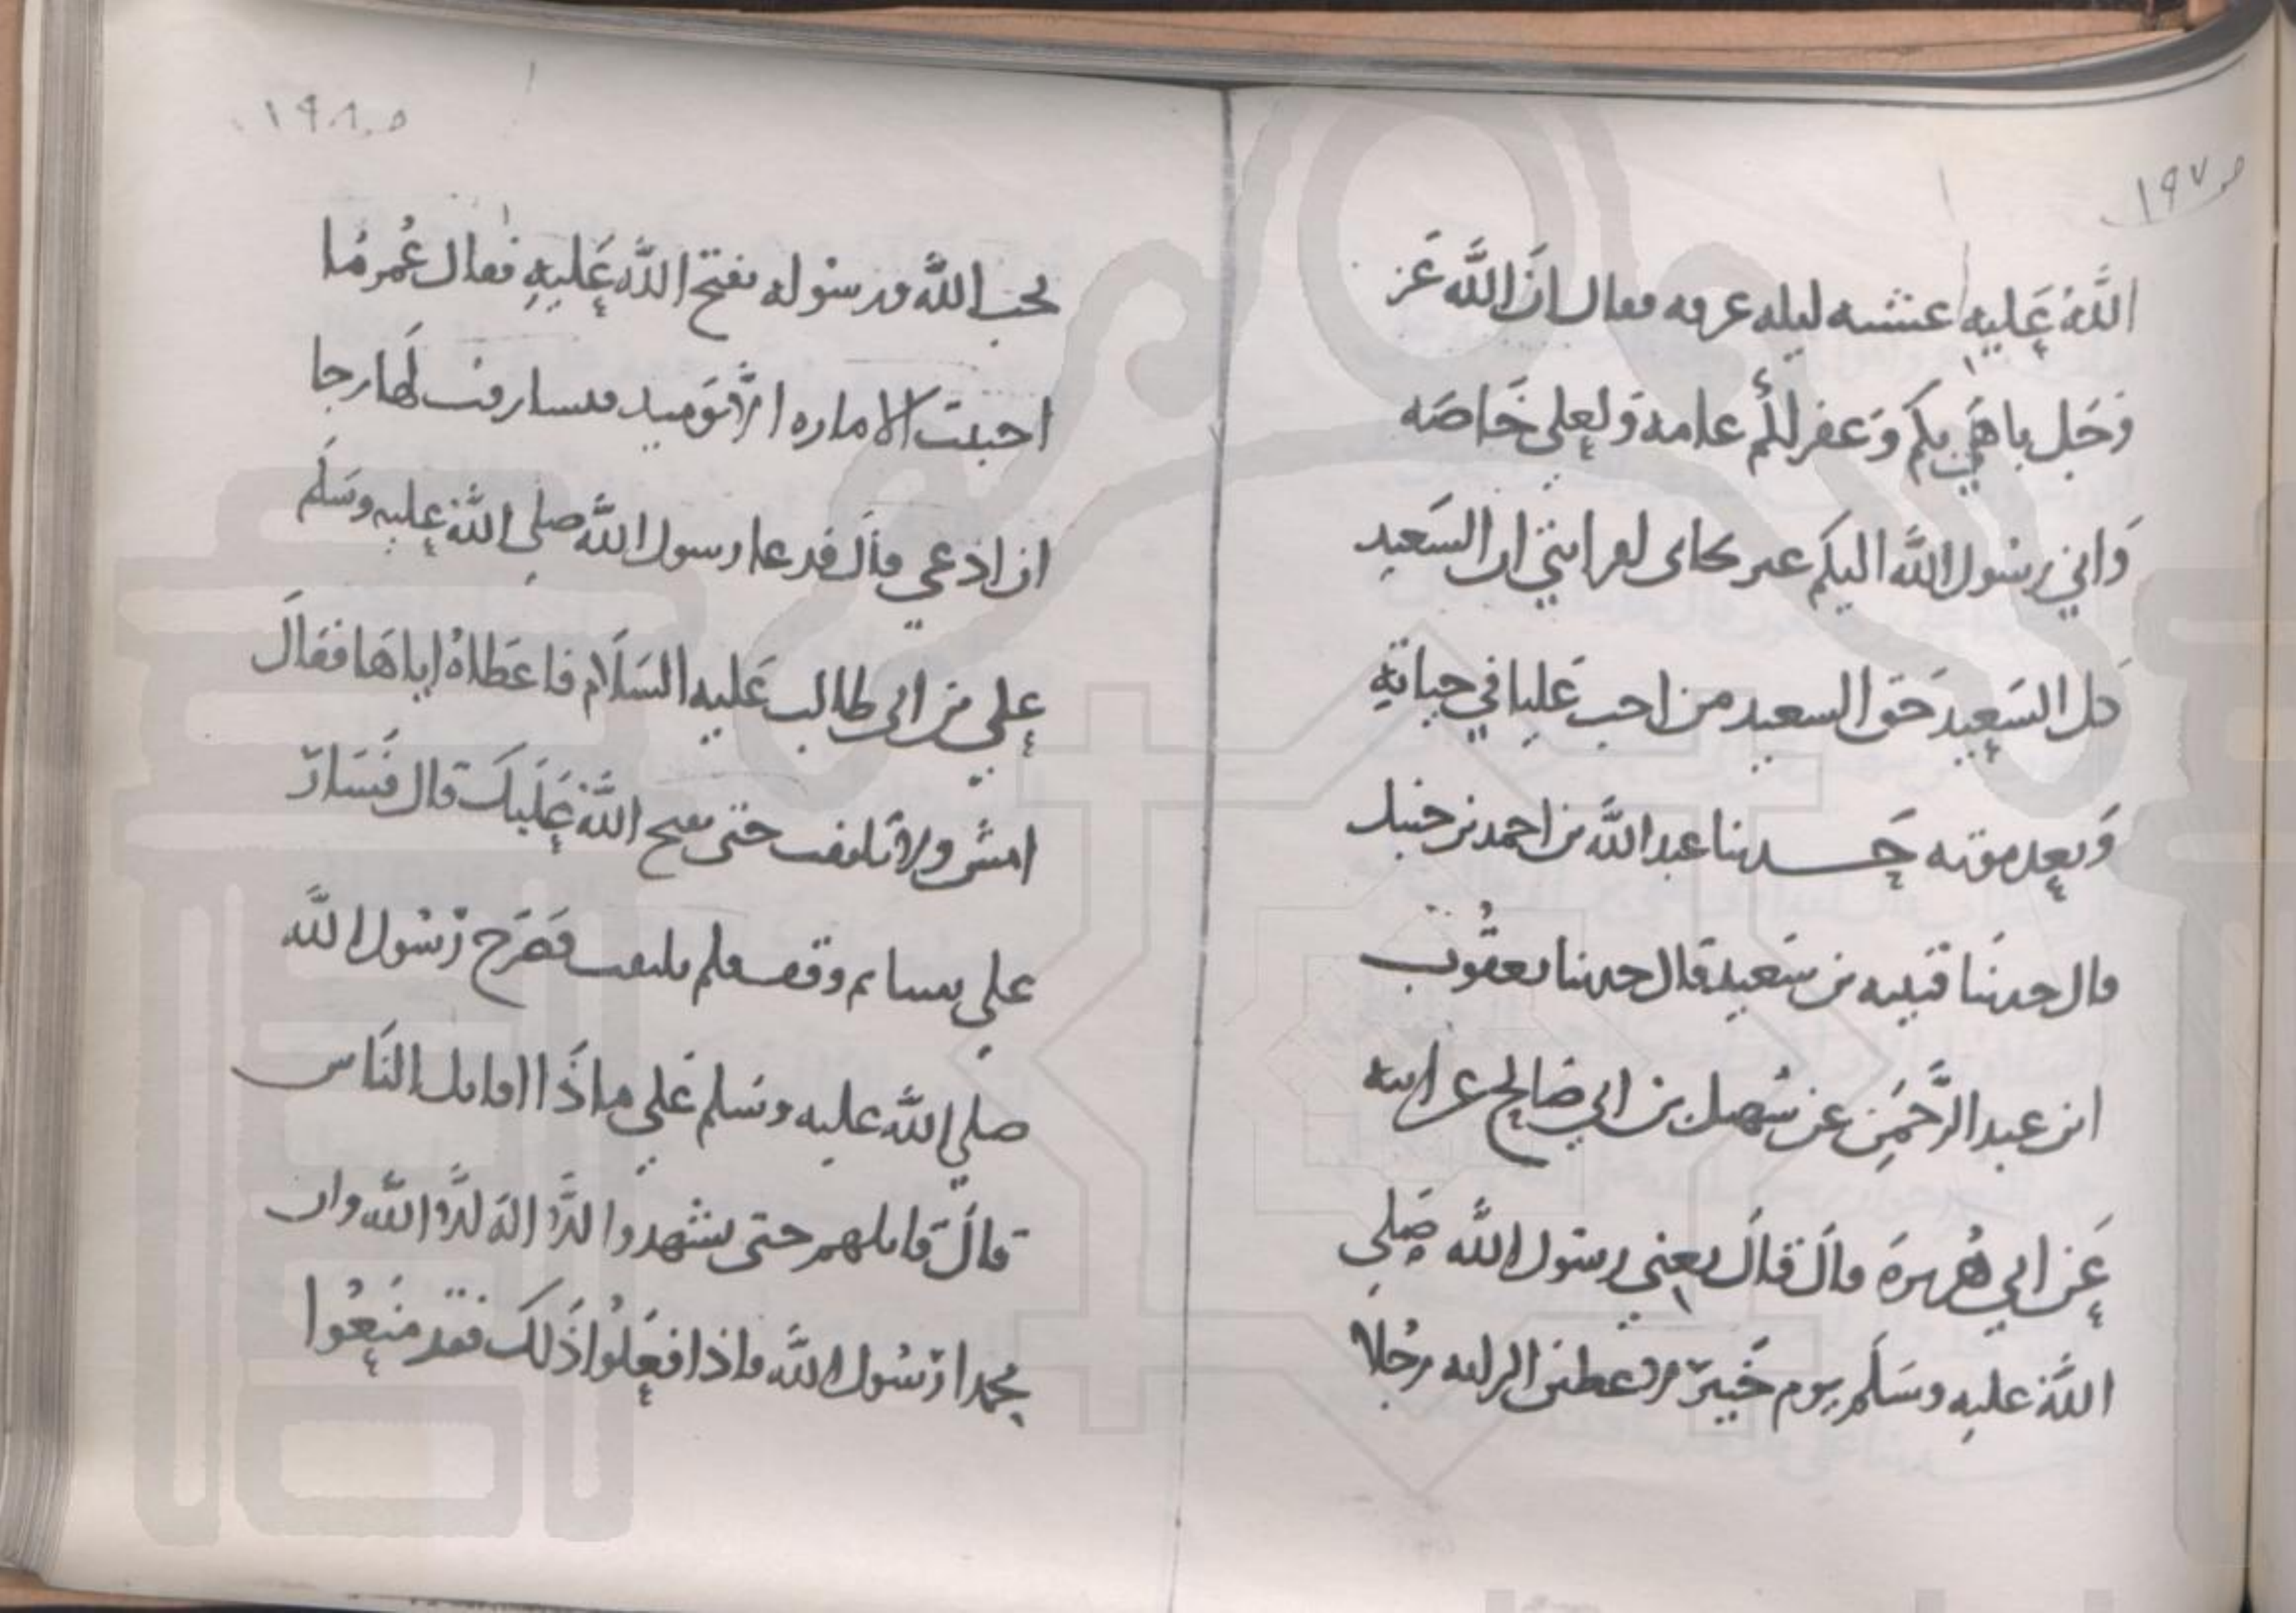 ص ١٩٧
الله عليه عشيه ليله عرفه فقال ان الله عز
وجل باهى بكم وغفر لكم عامه ولعلي خاصه
واني رسول الله اليكم غير محاب لقرابتي ان السعيد
كل السعيد حق السعيد من احب عليا في حياته
وبعد موته حدثنا عبد الله بن احمد بن حنبل
قال حدثنا قتيبه بن سعيد قال حدثنا يعقوب
ابن عبد الرحمن عن سهيل بن ابي صالح عن ابيه
عن ابي هريرة قال قال يعني رسول الله صلي
الله عليه وسلم يوم خيبر لاعطين الرايه رجلا
ص ١٩٨
يحب الله ورسوله يفتح الله عليه فقال عمر ما
احببت الاماره الا يوميد فتسارفت لها رجا
ان ادعي قال فدعا رسول الله صلي الله عليه وسلم
علي بن ابي طالب عليه السلام فاعطاه اياها فقال
امش ولا تلتفت حتى يفتح الله عليك قال فسار
علي ثم وقف فلم يلتفت فصرخ رسول الله
صلي الله عليه وسلم علي ماذا اقاتل الناس
قال قاتلهم حتى يشهدوا الا اله الا الله وان
محمدا رسول الله فاذا فعلوا ذلك فقد منعوا